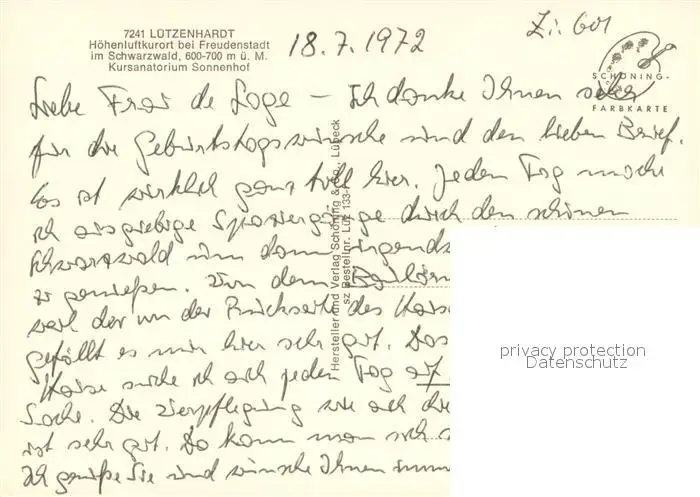 7241 LÜTZENHARDT
Höhenluftkurort bei Freudenstadt
im Schwarzwald, 600-700 m ü. M.
Kursanatorium Sonnenhof
18.7.1972
Zi. 601
SCHÖNING-
FARBKARTE
Liebe Frau de Loge – Ich danke Ihnen sehr
für die Geburtstagswünsche und den lieben Brief.
Es ist wirklich ganz toll hier. Jeden Tag mache
ich ausgiebige Spaziergänge durch den schönen
Schwarzwald um dann irgends
zu genießen. Von dem
weil der an der Rückseite des Hause
gefällt es mir hier sehr gut. Das
Hause suche ich auch jeden Tag auf
Sache. Die Verpflegung wie auch die
ist sehr gut. Da kann man sich
Ich genieße sie und wünsche Ihnen imm
Hersteller und Verlag Schöning & Co., Lübeck
sz Bestellnr. Lüt 133-
privacy protection
Datenschutz